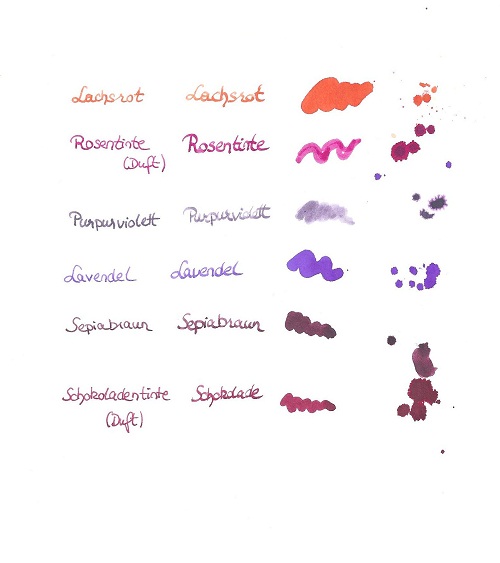 Lachsrot Lachsrot
Rosentinte Rosentinte
(Duft)
Purpurviolett Purpurviolett
Lavendel Lavendel
Sepiabraun Sepiabraun
Schokoladentinte Schokolade
(Duft)